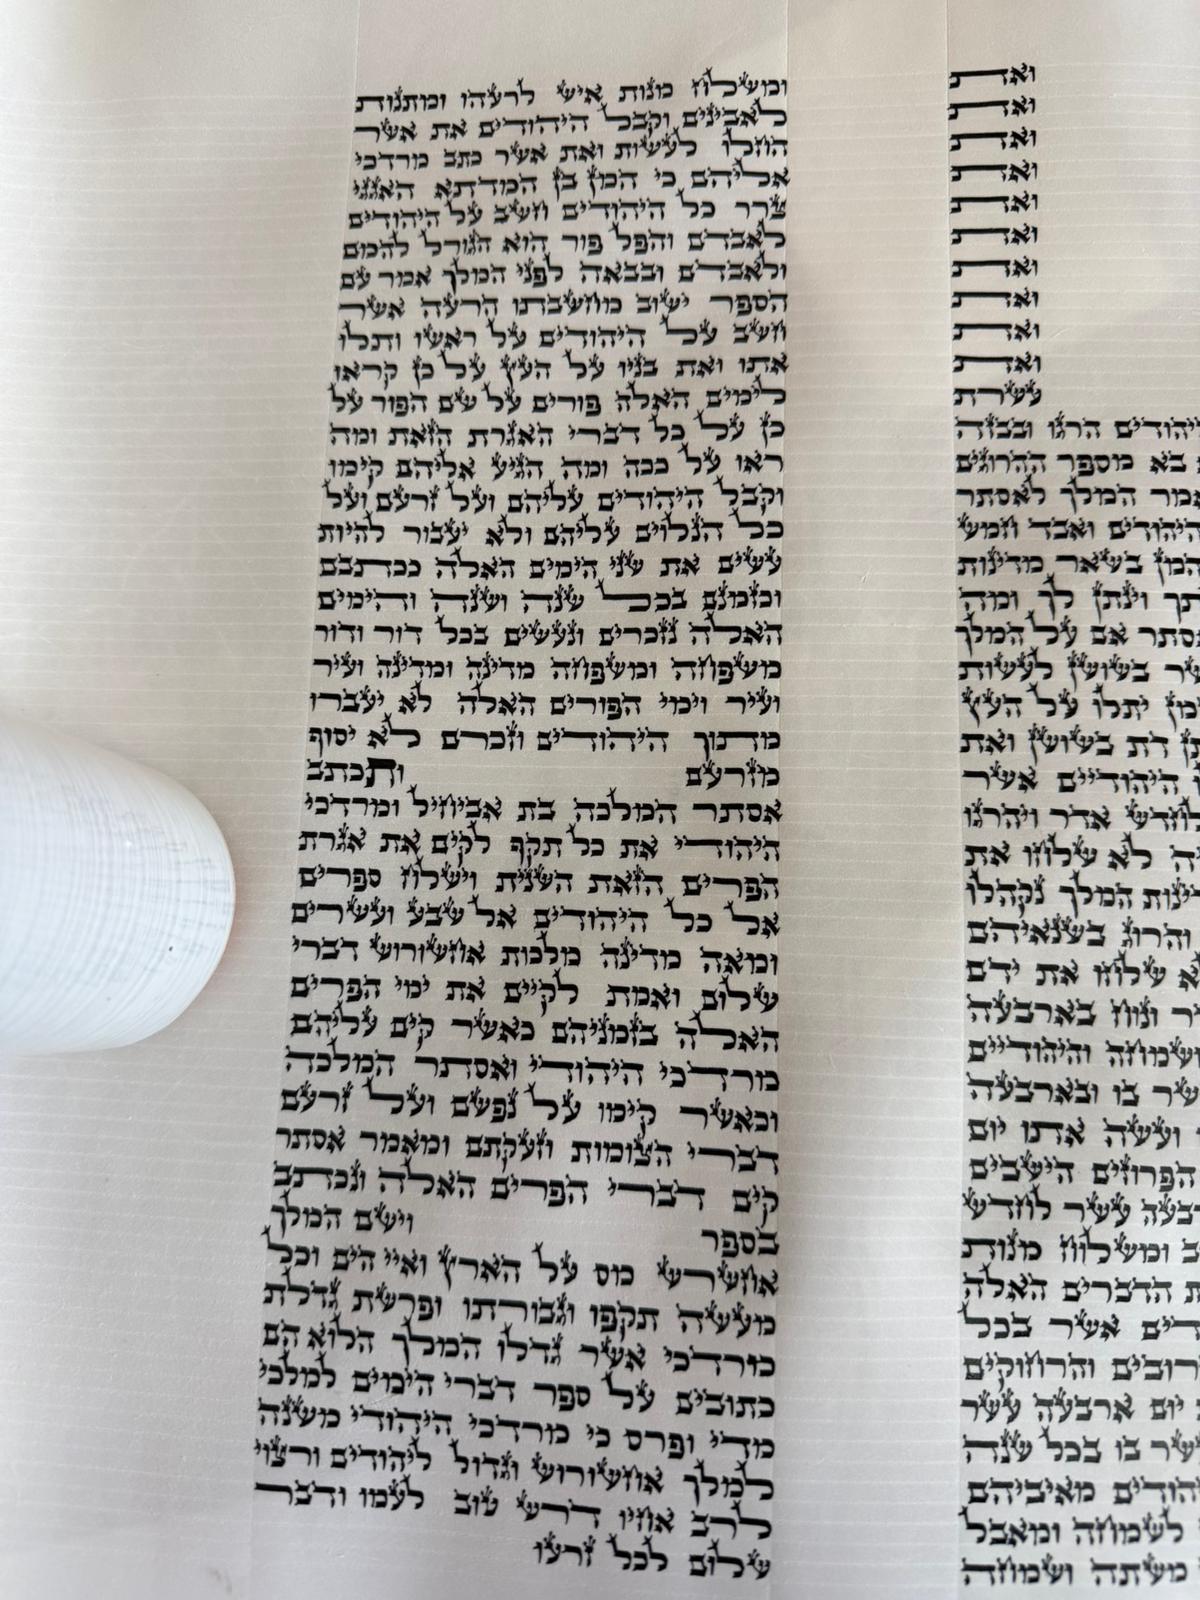 ואת
ואת
ואת
ואת
ואת
ואת
ואת
ואת
ואת
ואת
עשרת
יהודים הרגו ובבזה
בא מספר ההרוגים
אמר המלך לאסתר
היהודים ואבד חמש
המן בשאר מדינות
תך וינתן לך ומה
אסתר אם על המלך
שר בשושן לעשות
מן יתלו על העץ
תן דת בשושן ואת
היהודיים אשר
לחדש אדר ויהרגו
זה לא שלחו את
דינות המלך נקהלו
והרוג בשנאיהם
לא שלחו את ידם
ר ונוח בארבעה
ושמחה והיהודיים
שר בו ובארבעה
ועשה אתו יום
הפרוזים הישבים
רבעה עשר לחדש
ב ומשלוח מנות
ת הדברים האלה
דים אשר בכל
רובים והרחוקים
יום ארבעה עשר
שר בו בכל שנה
הודים מאיביהם
לשמחה ומאבל
משתה ושמחה
ומשלוח מנות איש לרעהו ומתנות
לאבינים וקבל היהודים את אשר
החלו לעשות ואת אשר כתב מרדכי
אליהם כי המן בן המדתא האגגי
צרר כל היהודים חשב על היהודים
לאבדם והפל פור הוא הגורל להמם
ולאבדם ובבאה לפני המלך אמר עם
הספר ישוב מחשבתו הרעה אשר
חשב על היהודים על ראשו ותלו
אתו ואת בניו על העץ על כן קראו
לימים האלה פורים על שם הפור על
כן על כל דברי האגרת הזאת ומה
ראו על ככה ומה הגיע אליהם קימו
וקבל היהודים עליהם ועל זרעם ועל
כל הנלוים עליהם ולא יעבור להיות
עשים את שני הימים האלה ככתבם
וכזמנם בכל שנה ושנה והימים
האלה נזכרים ונעשים בכל דור ודור
משפחה ומשפחה מדינה ומדינה ועיר
ועיר וימי הפורים האלה לא יעברו
מתוך היהודים וזכרם לא יסוף
מזרעם ותכתב
אסתר המלכה בת אביחיל ומרדכי
היהודי את כל תקף לקים את אגרת
הפרים הזאת השנית וישלח ספרים
אל כל היהודים אל שבע ועשרים
ומאה מדינה מלכות אחשורוש דברי
שלום ואמת לקיים את ימי הפרים
האלה בזמניהם כאשר קים עליהם
מרדכי היהודי ואסתר המלכה
וכאשר קימו על נפשם ועל זרעם
דברי הצומות וזעקתם ומאמר אסתר
קים דברי הפרים האלה ונכתב
בספר וישם המלך
אחשרש מס על הארץ ואיי הים וכל
מעשה תקפו וגבורתו ופרשת גדלת
מרדכי אשר גדלו המלך הלוא הם
כתובים על ספר דברי הימים למלכי
מדי ופרס כי מרדכי היהודי משנה
למלך אחשורוש וגדול ליהודים ורצוי
לרב אחיו דרש טוב לעמו ודבר
שלום לכל זרעו